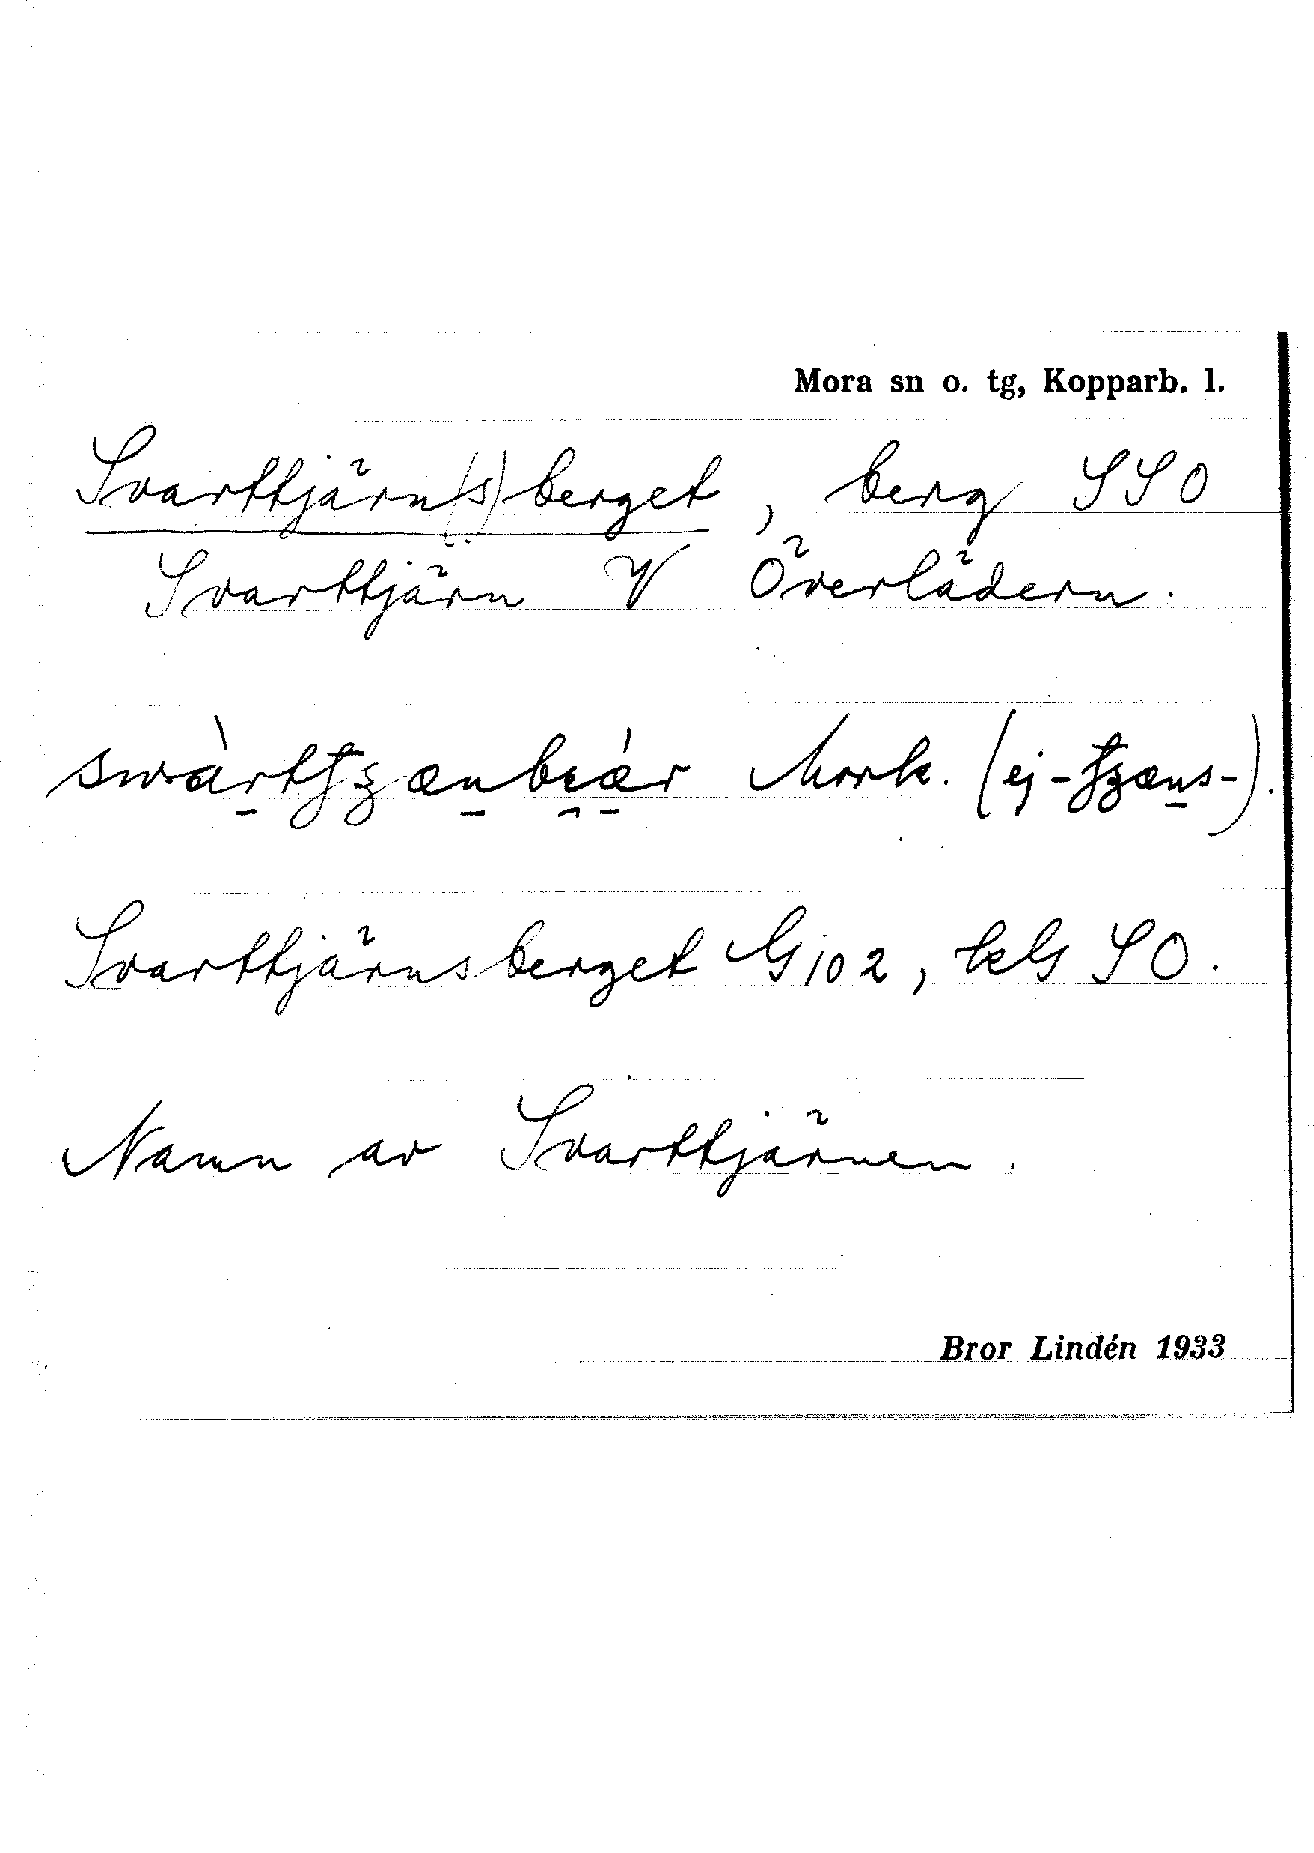 Mora sn o. tg, Kopparb. l.
Svarttjärn(s)berget, berg SSO
Svarttjärn V Överlädern.
swàrttʃzænbɪ̯ær Mork. (ej -tʃzæns-).
Svarttjärnsberget G 102, kbl SO.
Namn av Svarttjärnen.
Bror Lindén 1933